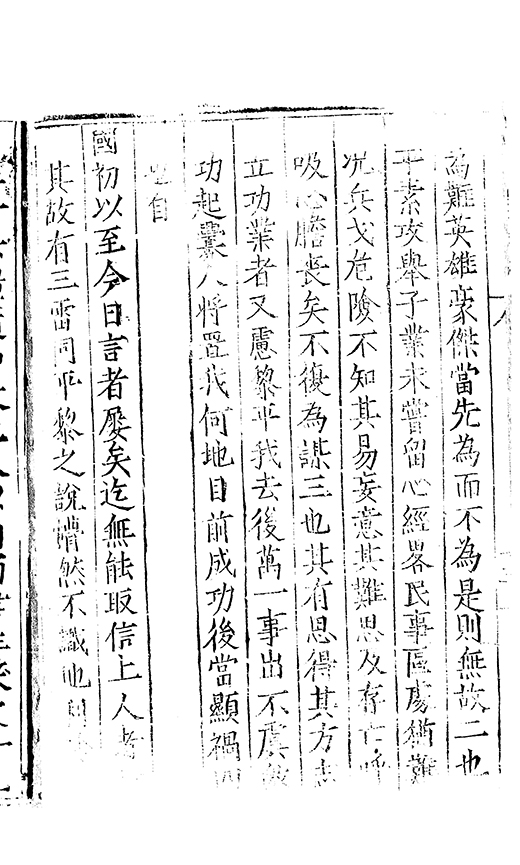 為難英雄豪傑當先為而不為是則無故二也
平素攻舉子業未嘗留心經畧民事區處猶難
况兵戈危險不知其易妄意其難思及存亡呼
吸心膽喪矣不復為謀三也其有思得其方志
立功業者又慮黎平我去後萬一事出不虞
功起釁人將置我何地目前成功後當顯禍四
也自
國初以至今日言者屢矣迄無能取信上人者
其故有三雷同平黎之說懵然不識地